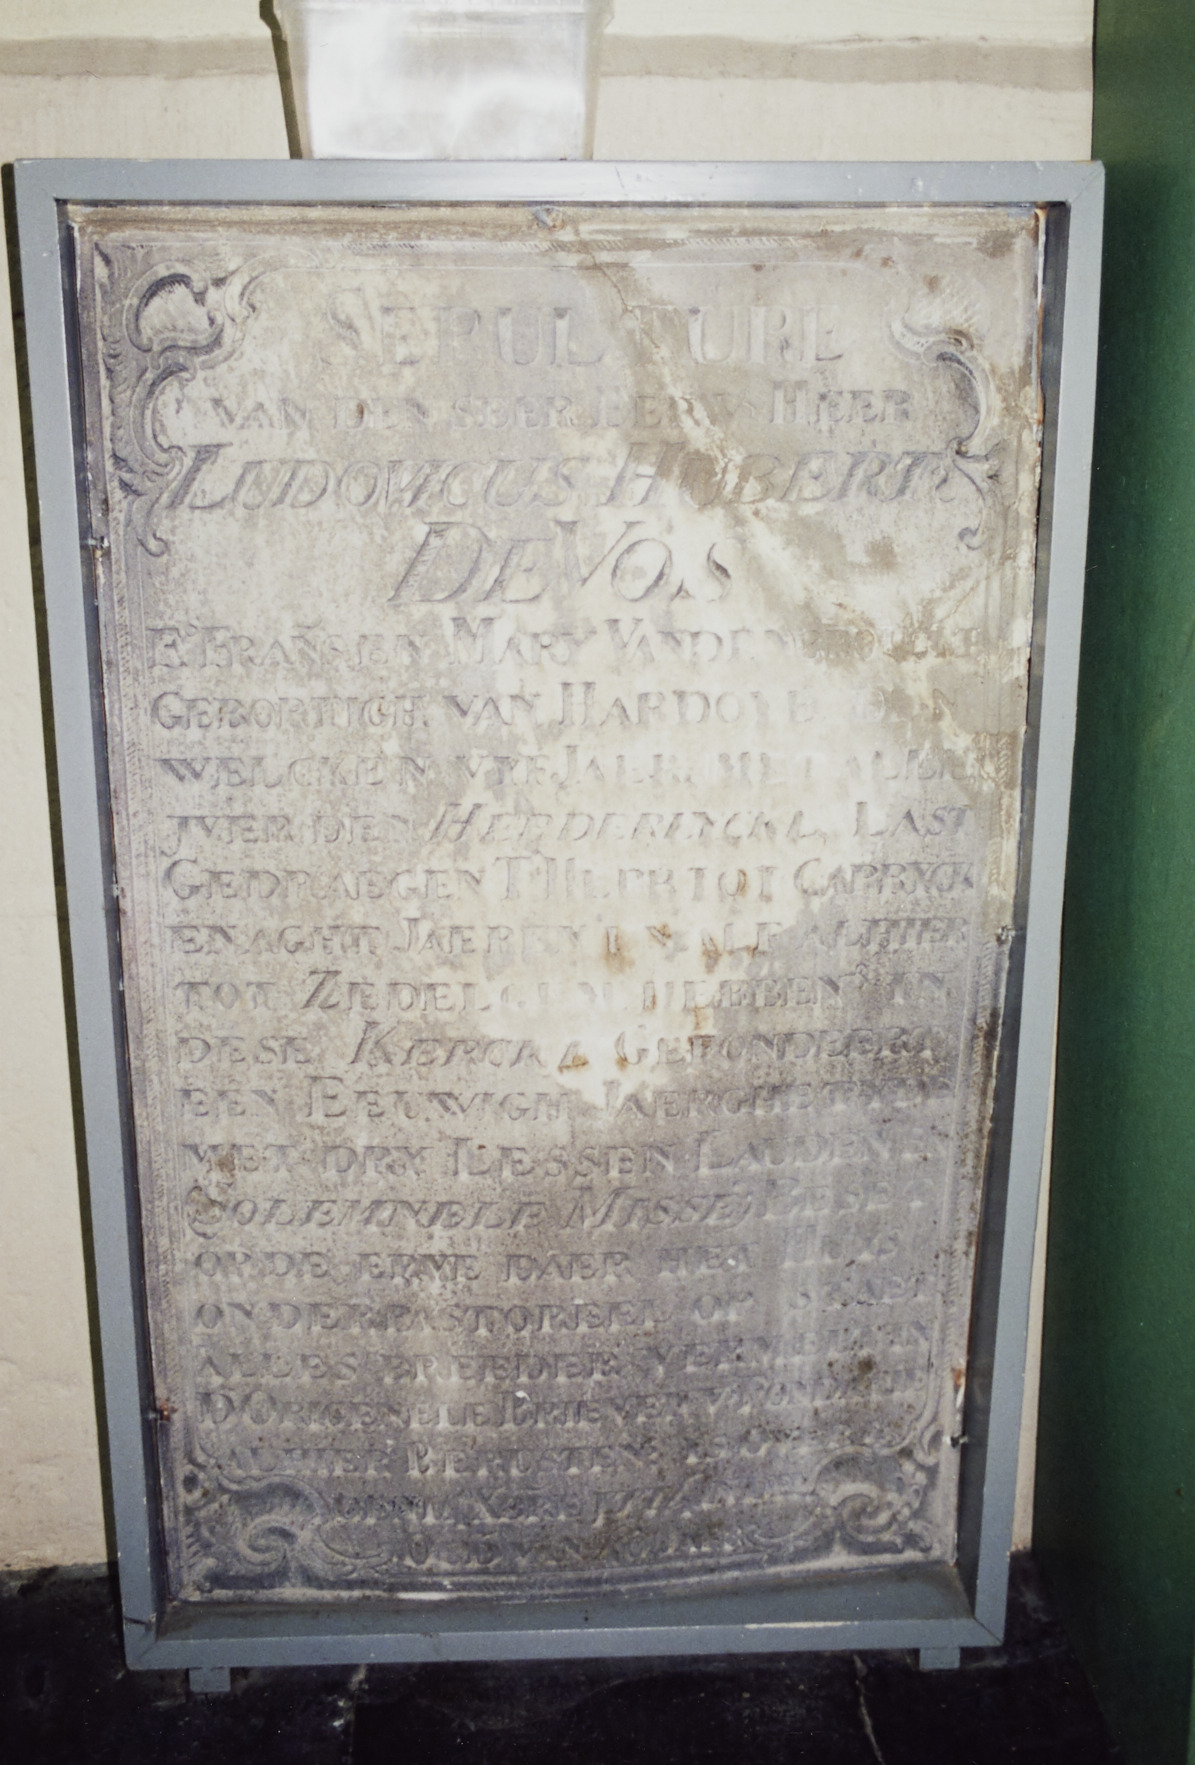 SEPULTURE
VAN DEN SEER EERW HEER
LUDOVICUS HUBERT
DE VOS
Fs FRANS EN MARY VANDEN
GEBORTIGH VAN HARDOYE DEN
WELCKEN VYF JAER MET
YVER DEN HERDERLYCKE LAST
GEDRAEGEN T'HEEFT TOT CAPRYCK
EN AGHT JAEREN ALHIER
TOT ZEDELGEM HEBBENDE IN
DESE KERCKE GEFONDEERT
EEN EEUWIGH JAERGHETYDE
MET DRY LESSEN LAUDEN EN
SOLEMNELE MISSE, BESET
OP DE ERVE DAER HET HUYS
ONDERPASTOREEL OP STAET
ALLES BREEDER VERMELT IN
D'ORIGENELE BRIEVEN
ALHIER BERUSTEN
XBRE
OUDT VAN